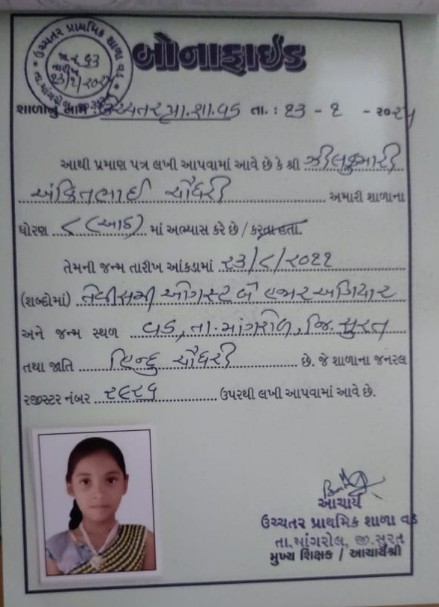 ઉચ્ચતર પ્રાથમિક શાળા વડ
બોનાફાઈડ
શાળાનું નામ : ઉચ્ચતર પ્રા. શા. વડ તા. : ૨૩ - ૧ - ૨૦૨૫
આથી પ્રમાણ પત્ર લખી આપવામાં આવે છે કે શ્રી ઝીલકુમારી
અંકિતભાઈ ચૌધરી અમારી શાળાના
ધોરણ ૮ (આઠ) માં અભ્યાસ કરે છે / કરતા હતા.
તેમની જન્મ તારીખ આંકડામાં ૨૩/૮/૨૦૧૧
(શબ્દોમાં) તેવીસમી ઓગસ્ટ બે હજાર અગિયાર
અને જન્મ સ્થળ વડ, તા. માંગરોળ, જિ. સુરત
તથા જાતિ હિન્દુ ચૌધરી છે. જે શાળાના જનરલ
રજીસ્ટર નંબર ઉપરથી લખી આપવામાં આવે છે.
આચાર્ય
ઉચ્ચતર પ્રાથમિક શાળા વડ
તા. માંગરોલ, જી. સુરત
મુખ્ય શિક્ષક / આચાર્યશ્રી